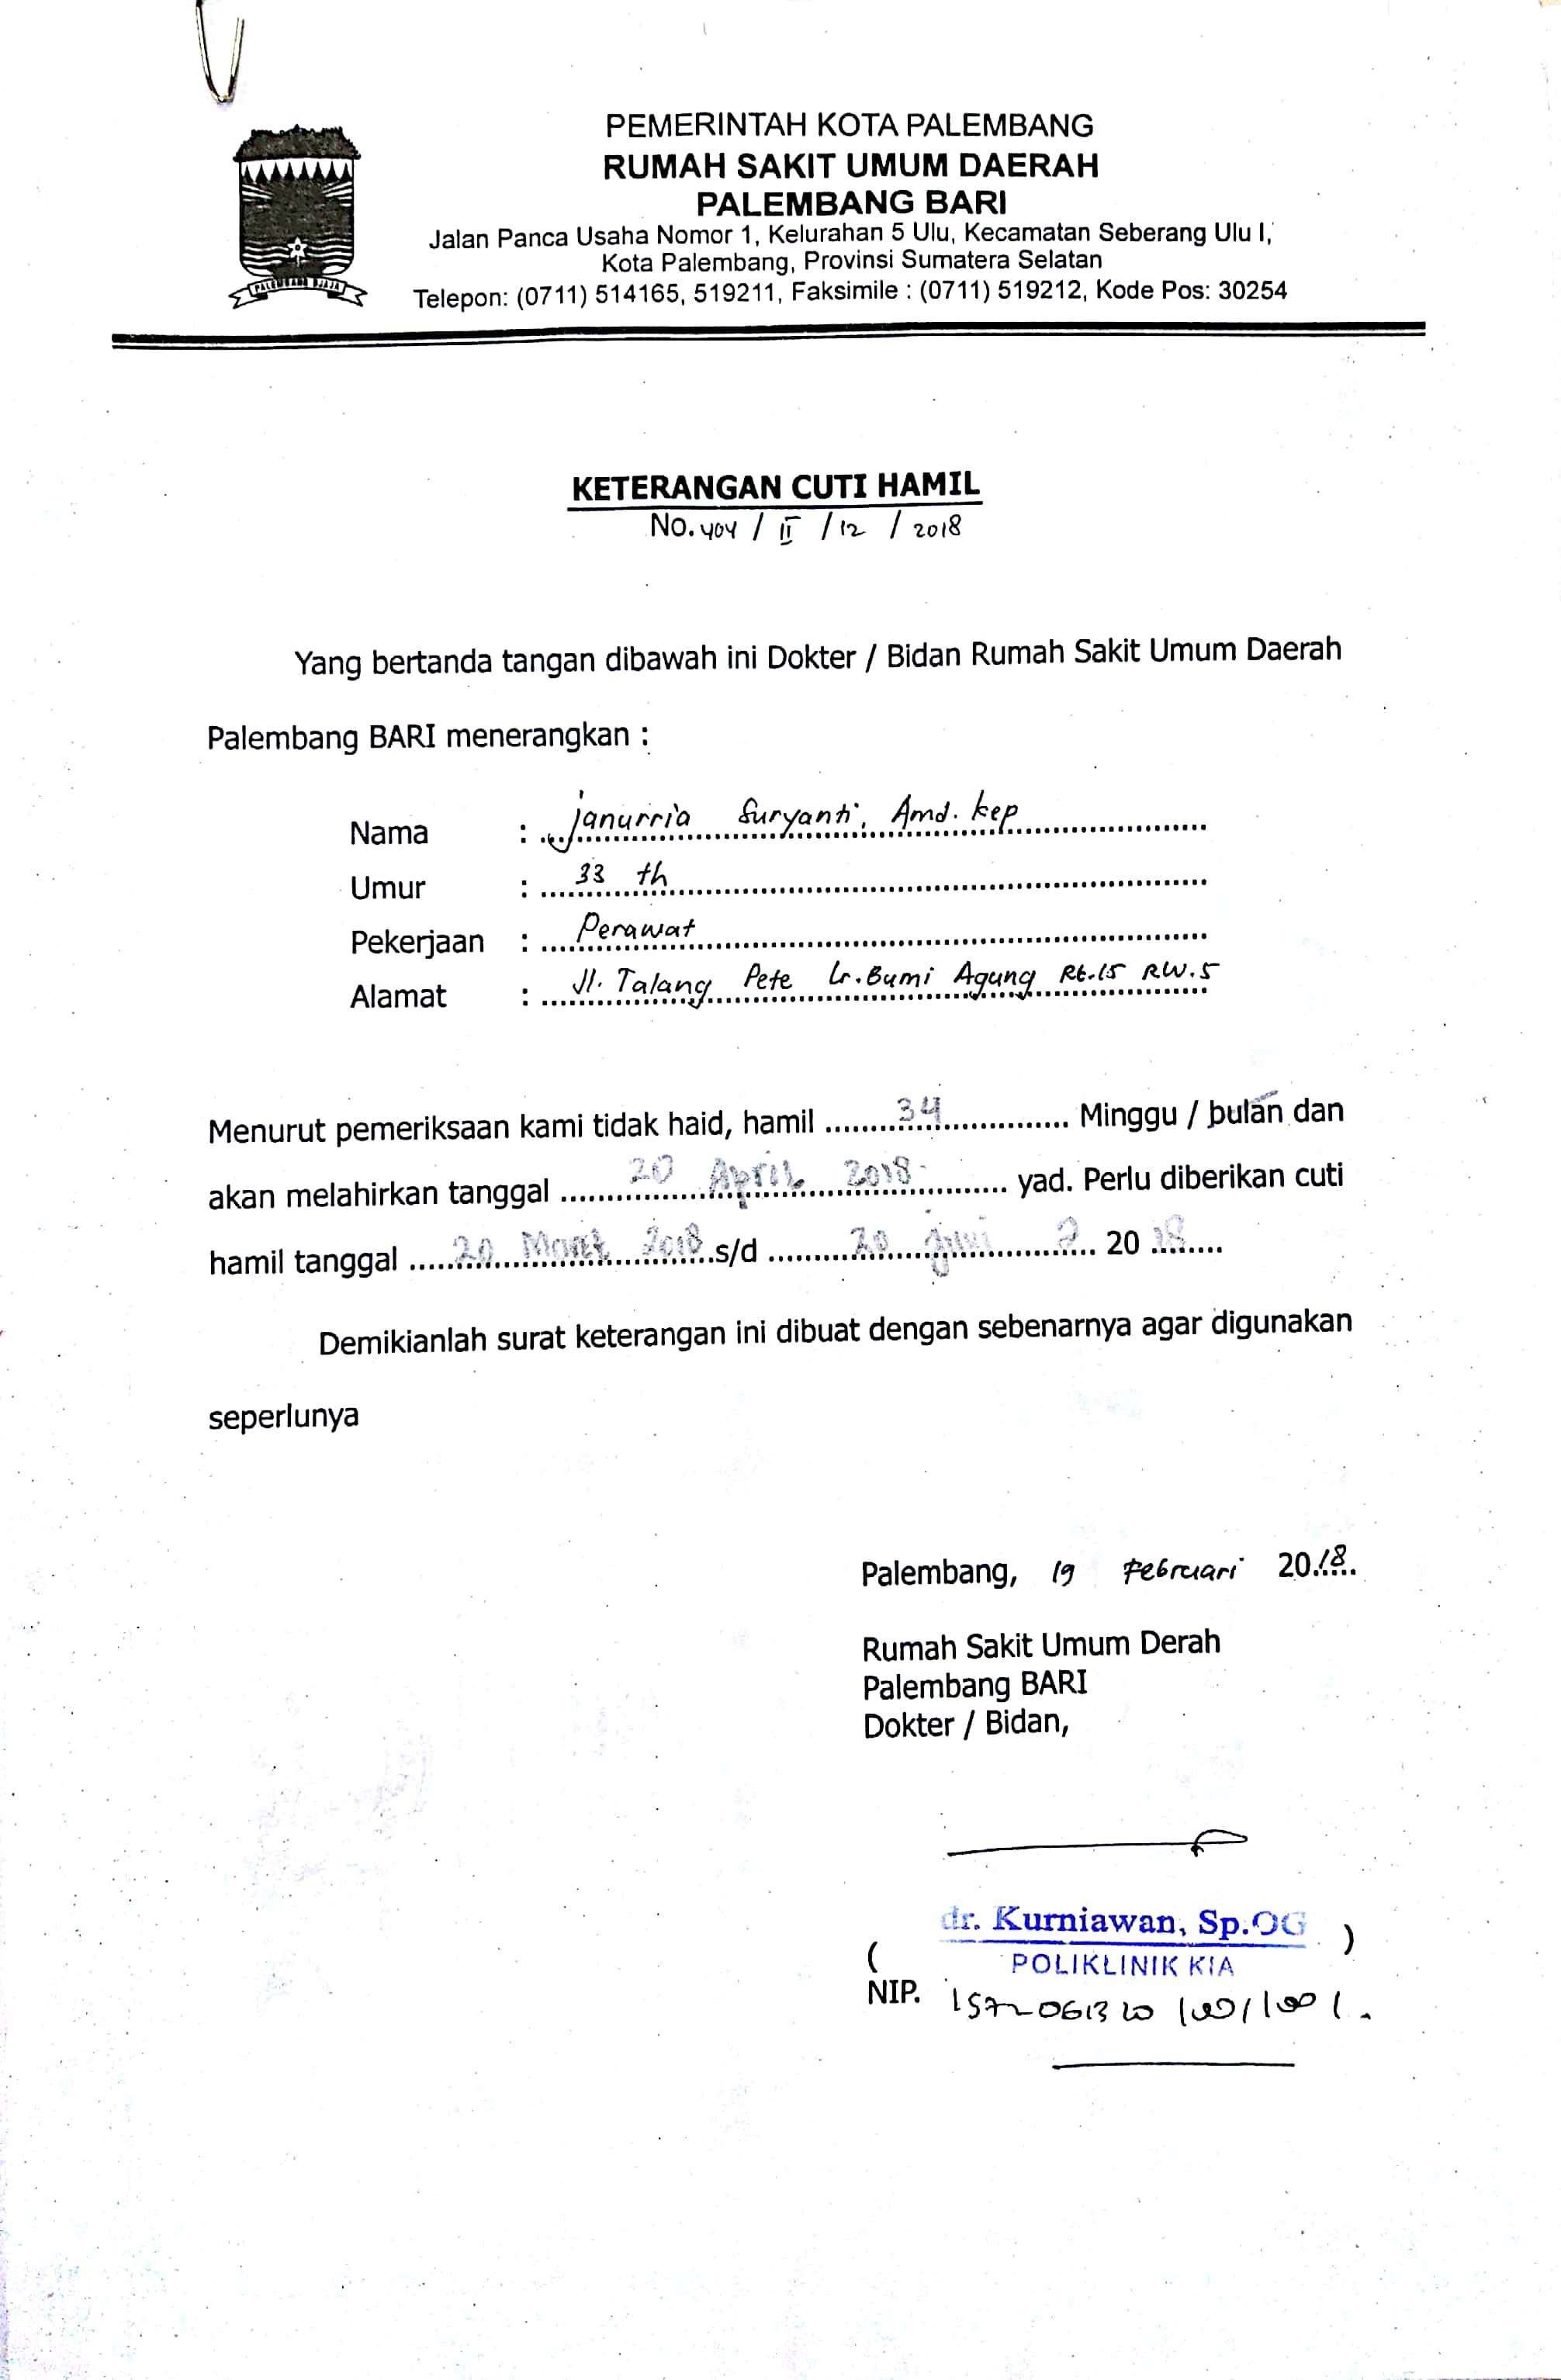 PALEMBANG DJAJA
PEMERINTAH KOTA PALEMBANG
RUMAH SAKIT UMUM DAERAH
PALEMBANG BARI
Jalan Panca Usaha Nomor 1, Kelurahan 5 Ulu, Kecamatan Seberang Ulu I,
Kota Palembang, Provinsi Sumatera Selatan
Telepon: (0711) 514165, 519211, Faksimile : (0711) 519212, Kode Pos: 30254
KETERANGAN CUTI HAMIL
No. 404 / II / 12 / 2018
Yang bertanda tangan dibawah ini Dokter / Bidan Rumah Sakit Umum Daerah
Palembang BARI menerangkan :
Nama : Janurria Suryanti, Amd. kep
Umur : 33 th
Pekerjaan : Perawat
Alamat : Jl. Talang Pete Lr. Bumi Agung Rt.15 RW.5
Menurut pemeriksaan kami tidak haid, hamil 34 Minggu / bulan dan
akan melahirkan tanggal 20 April 2018 yad. Perlu diberikan cuti
hamil tanggal 20 Maret 2018 s/d 20 Juni 20 18
Demikianlah surat keterangan ini dibuat dengan sebenarnya agar digunakan
seperlunya
Palembang, 19 Februari 2018
Rumah Sakit Umum Derah
Palembang BARI
Dokter / Bidan,
( dr. Kurniawan, Sp.OG )
POLIKLINIK KIA
NIP.